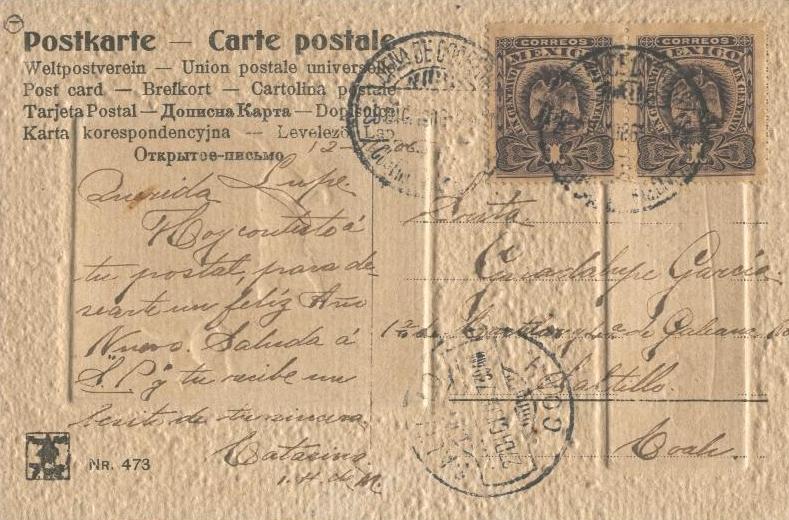 Postkarte — Carte postale
Weltpostverein — Union postale universelle
Post card — Brefkort — Cartolina postale
Tarjeta Postal — Дописна Карта — Dopisnice
Karta korespondencyjna — Levelező Lap
Открытое-письмо
CORREOS
MEXICO
UN CENTAVO
CORREOS
MEXICO
UN CENTAVO
Querida Lupe.
Hoy contesto á
tu postal, para de-
searte un feliz Año
Nuevo. Saluda á
S. P. y tu recibe un
besito de tu sincera
Catarina
Srita.
Guadalupe García.
de Galeana
Saltillo.
Coah.
COAH
Nr. 473